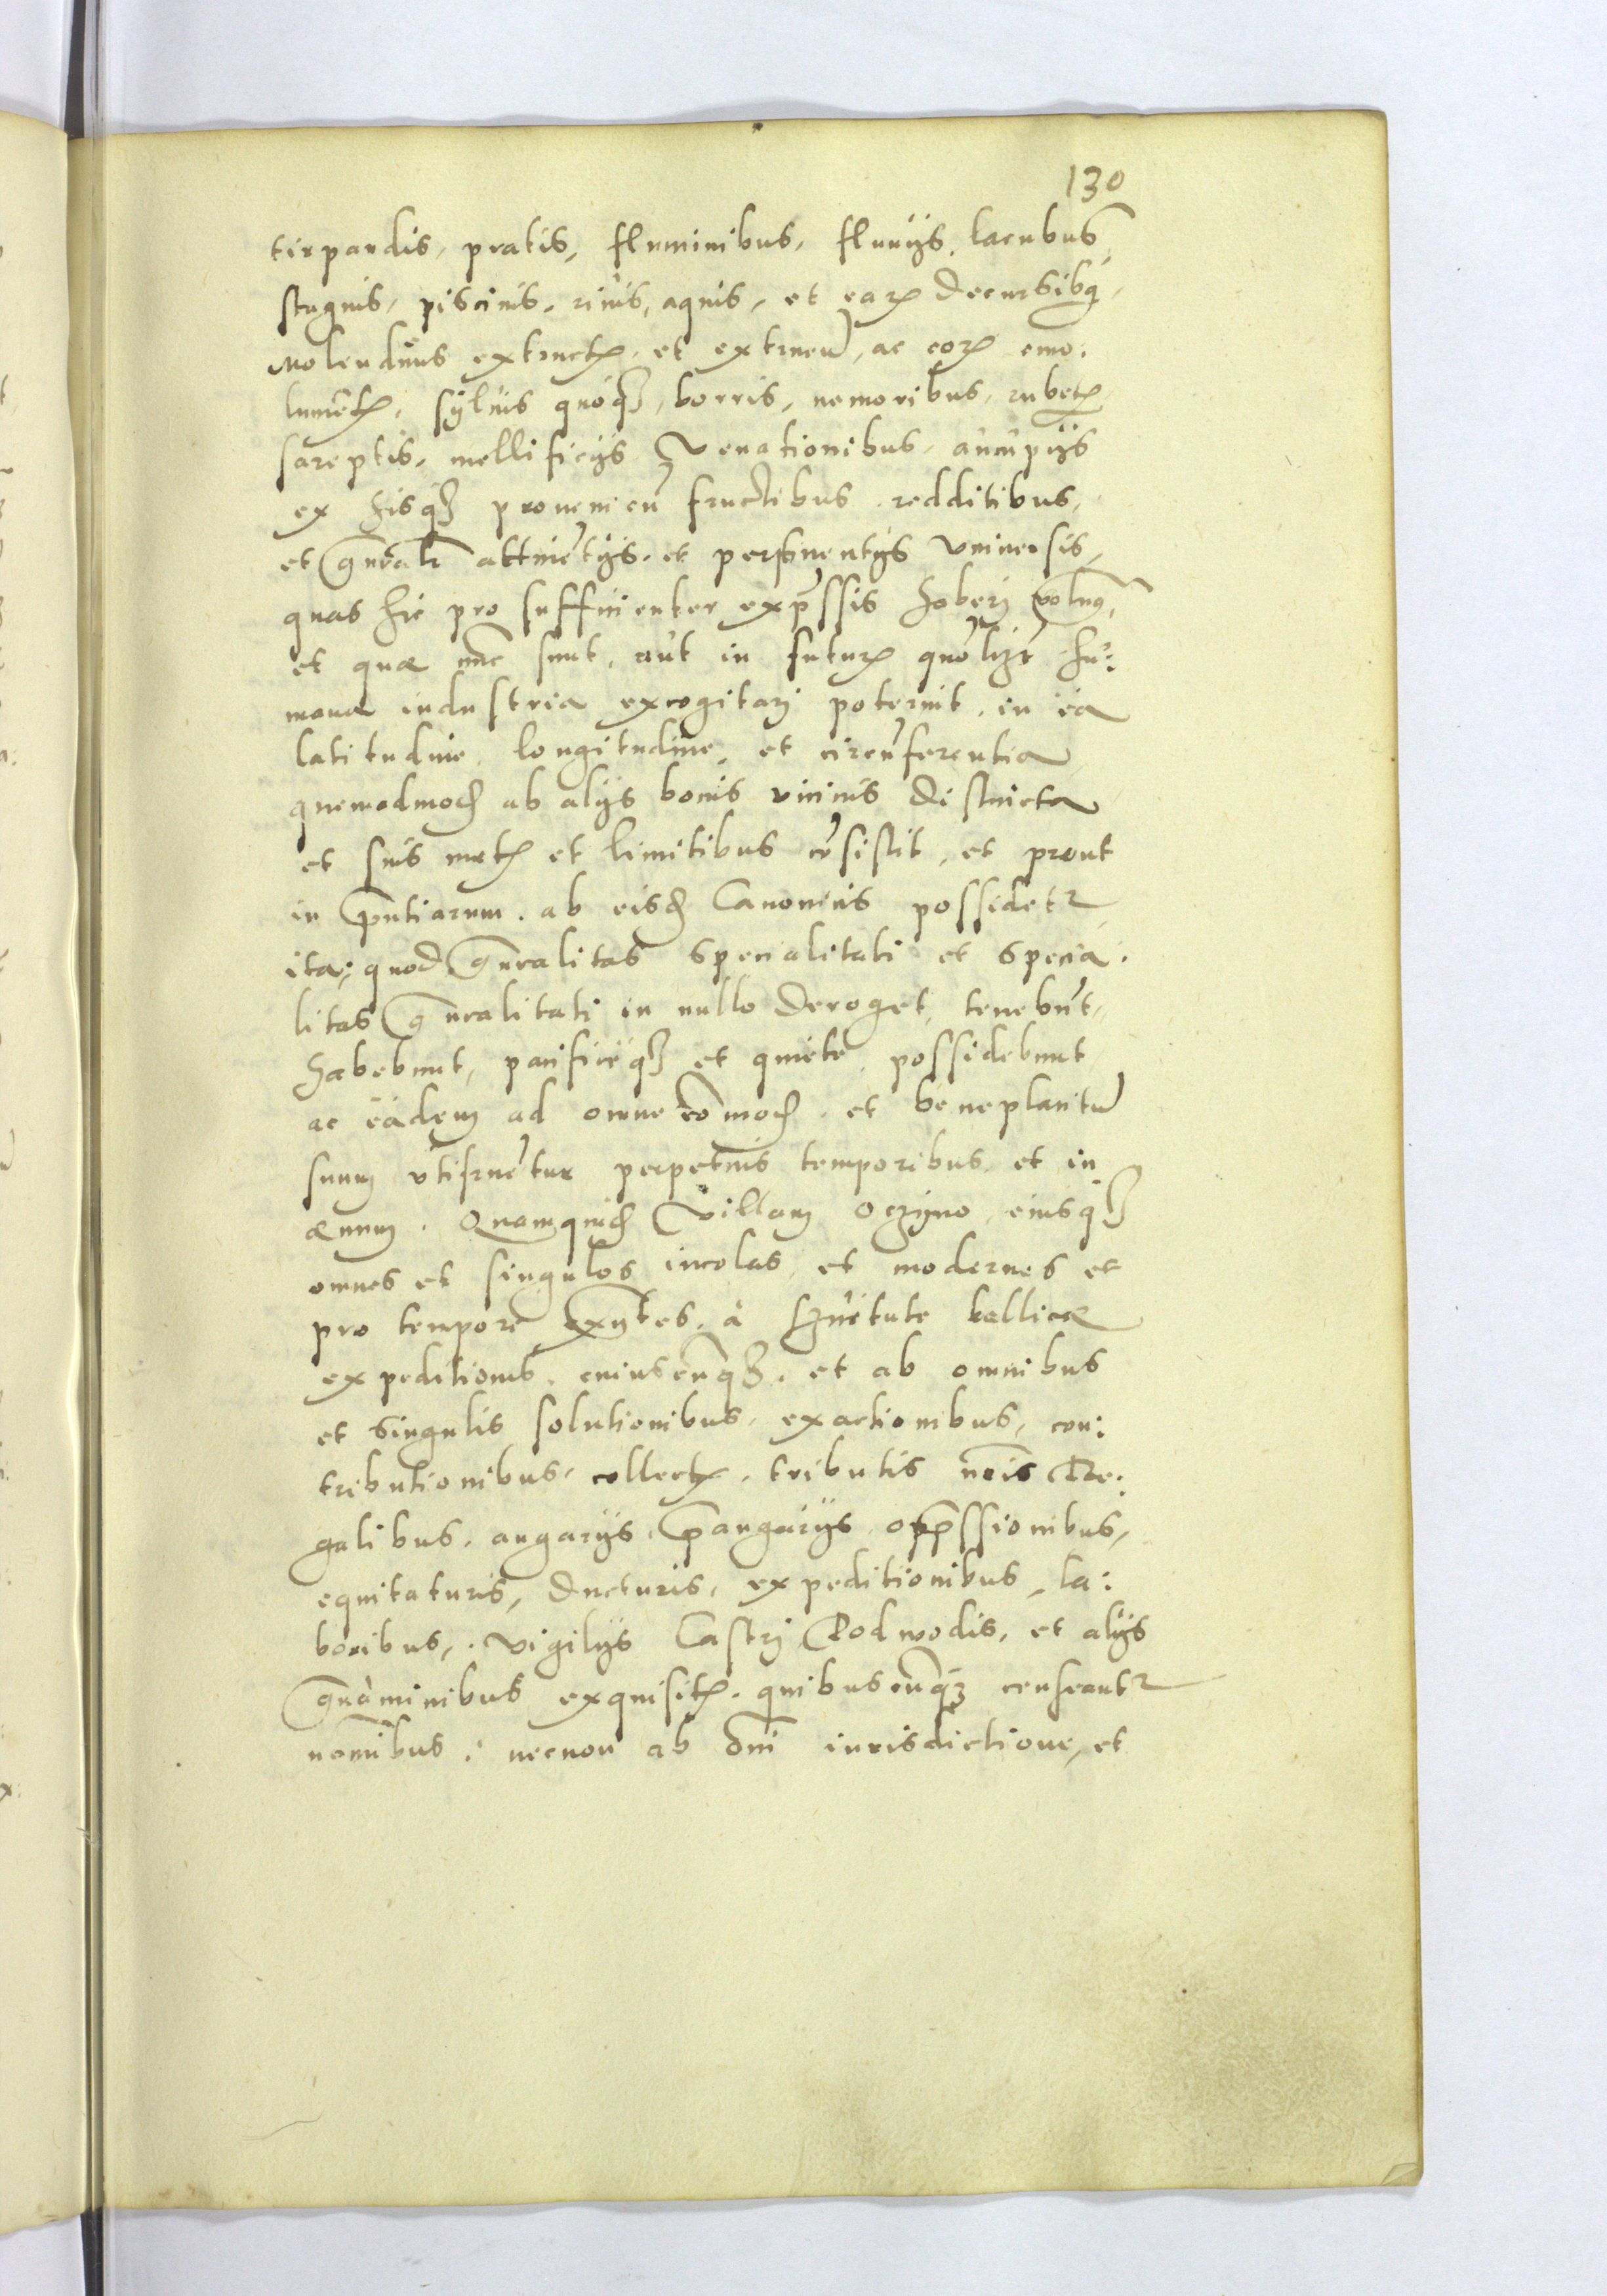 130
tirpandis, pratis, fluminibus, fluuijs, lacubus
stagnis, piscinis, riuis, aquis, et eaꝝ decursibꝫ,
Molendinis extructꝭ, et extruen̄, ac eoꝝ emo:
lumētꝭ, syluis quoqꝫ, borris, nemoribus, rubetꝭ
sareptis, mellificijs, Venationibus, aucupijs
ex hisqꝫ prouenieñ fructibus redditibus,
et gn̄rali attinētijs, et pertinentijs vniuersis,
quas hic pro sufficienter exp̄ssis haberi volum9,
et quae nūc sunt, aut in futuꝝ quōlizt hu:
mana industria excogitari poterint, in ea
latitudine, longitudine, et circūferentia
quemadmodꝫ ab alijs bonis vicinis distincta
et suis metꝭ et limitibus cōsistit, et prout
in pn̄tiarum ab eisdꝫ Canonicis possidetꝛ
ita; quod gn̄ralitas specialitati et specia:
litas gn̄ralitati in nullo deroget, tenebūt,
habebunt, pacificeqꝫ et quiete possidebunt
ac eadem ad omne cōmodꝫ et beneplacitū
suum vtifruētur perpetuis temporibus et in
aeuum. Quamquidꝫ villam Oczyno, eiusqꝫ
omnes et singulos incolas, et modernos et
pro tempore exn̄tes, à seruitute bellicae
expeditionis, cuiuscūqꝫ, et ab omnibus
et singulis solutionibus, exactionibus, con:
tributionibus, collectꝭ, tributis nr̄is Re:
galibus, angarijs, p̲angarijs, opp̄ssionibus,
equitaturis, ducturis, expeditionibus, la:
boribus, vigilijs Castri, Podwodis, et alijs
grauaminibus exquisitꝭ, quibuscūqꝫ censeantꝛ
nomībus: necnon ab om̄i iurisdictione, et